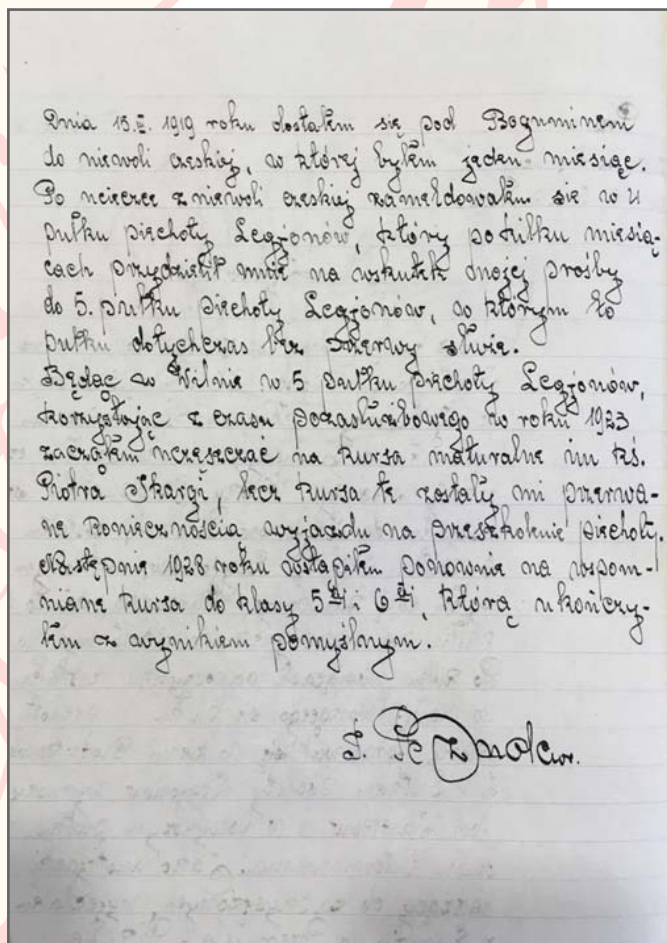 Dnia 15.II. 1919 roku dostałem się pod Boguminem
do niewoli czeskiej, w której byłem jeden miesiąc.
Po ucieczce z niewoli czeskiej zameldowałem się w 4
pułku piechoty Legjonów, który po kilku miesią-
cach przydzielił mnie na wskutek mojej prośby
do 5. pułku piechoty Legjonów, w którym to
pułku dotychczas bez przerwy służę.
Będąc w Wilnie w 5 pułku piechoty Legjonów,
korzystając z czasu pozasłużbowego w roku 1923
zacząłem uczęszczać na kursa maturalne im ks.
Piotra Skargi, lecz kursa te zostały mi przerwa-
ne koniecznością wyjazdu na przeszkolenie piechoty.
Następnie 1928 roku wstąpiłem ponownie na wspom-
niane kursa do klasy 5tej i 6tej, którą ukończy-
łem z wynikiem pomyślnym.